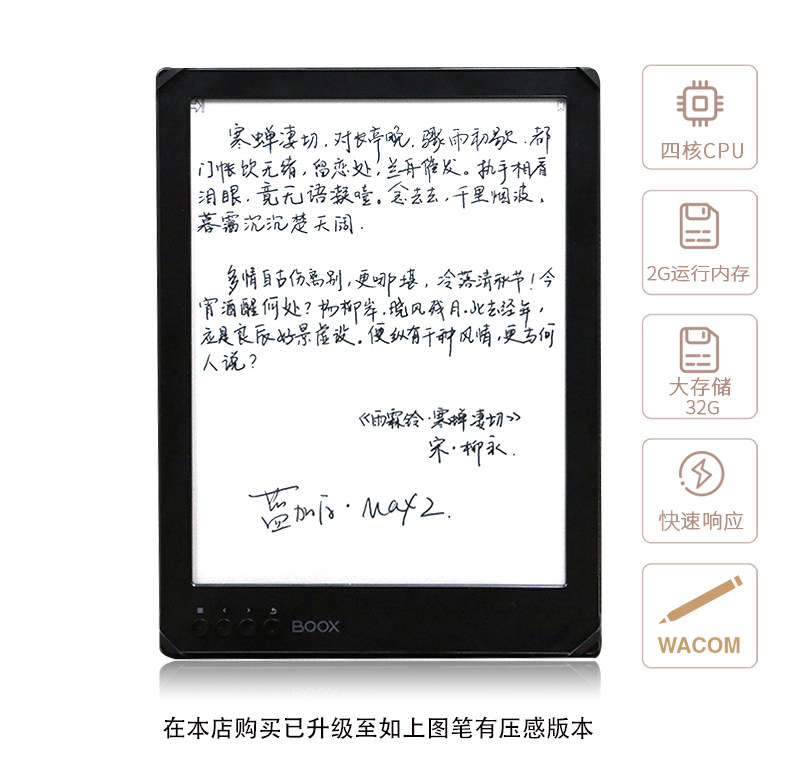 寒蝉凄切，对长亭晚，骤雨初歇．都
门帐饮无绪，留恋处，兰舟催发。执手相看
泪眼，竟无语凝噎。念去去，千里烟波，
暮霭沉沉楚天阔．
多情自古伤离别，更哪堪，冷落清秋节！今
宵酒醒何处？杨柳岸，晓风残月．此去经年，
应是良辰好景虚设。便纵有千种风情，更与何
人说？
《雨霖铃·寒蝉凄切》
宋·柳永．
·Max2.
BOOX
四核CPU
2G运行内存
大存储
32G
快速响应
WACOM
在本店购买已升级至如上图笔有压感版本